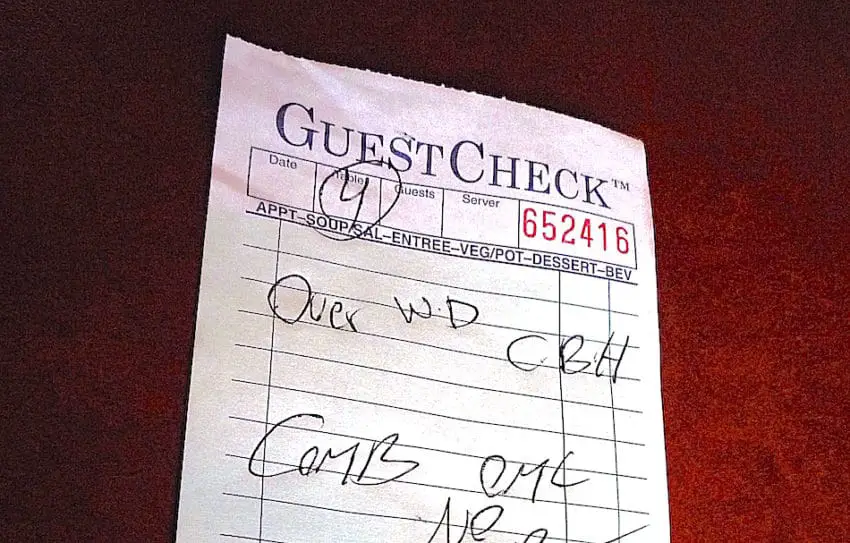 GUESTCHECK™
Date Table Guests Server
4 652416
APPT–SOUP/SAL–ENTREE–VEG/POT–DESSERT–BEV
Over W.D
C.B.H
COMB OML
NO